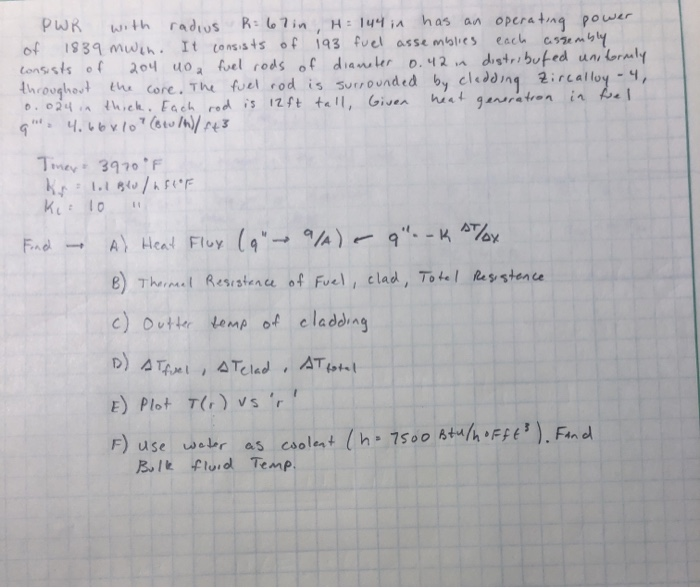 PWR with radius R= 67in, H= 144 in has an operating power
of 1839 mwth. It consists of 193 fuel assemblies each assembly
consists of 204 UO2 fuel rods of diameter 0.42 in distributed uniformly
throughout the core. The fuel rod is surrounded by cledding Zircalloy-4,
0.024 in thick. Each rod is 12ft tall, Given heat generation in fuel
q''' = 4.66x10^7 (Btu/h)/ft3
Tmax= 3970°F
Kf = 1.1 Btu/h ft°F
Kc = 10 "
Find → A) Heat Flux (q" → q/A) ← q" = -K ΔT/Δx
B) Thermal Resistence of Fuel, clad, Total Resistence
C) Outter temp of cladding
D) ΔTfuel, ΔTclad, ΔTtotal
E) Plot T(r) vs 'r'
F) use water as coolent (h= 7500 Btu/h°Fft3). Find
Bulk fluid Temp.